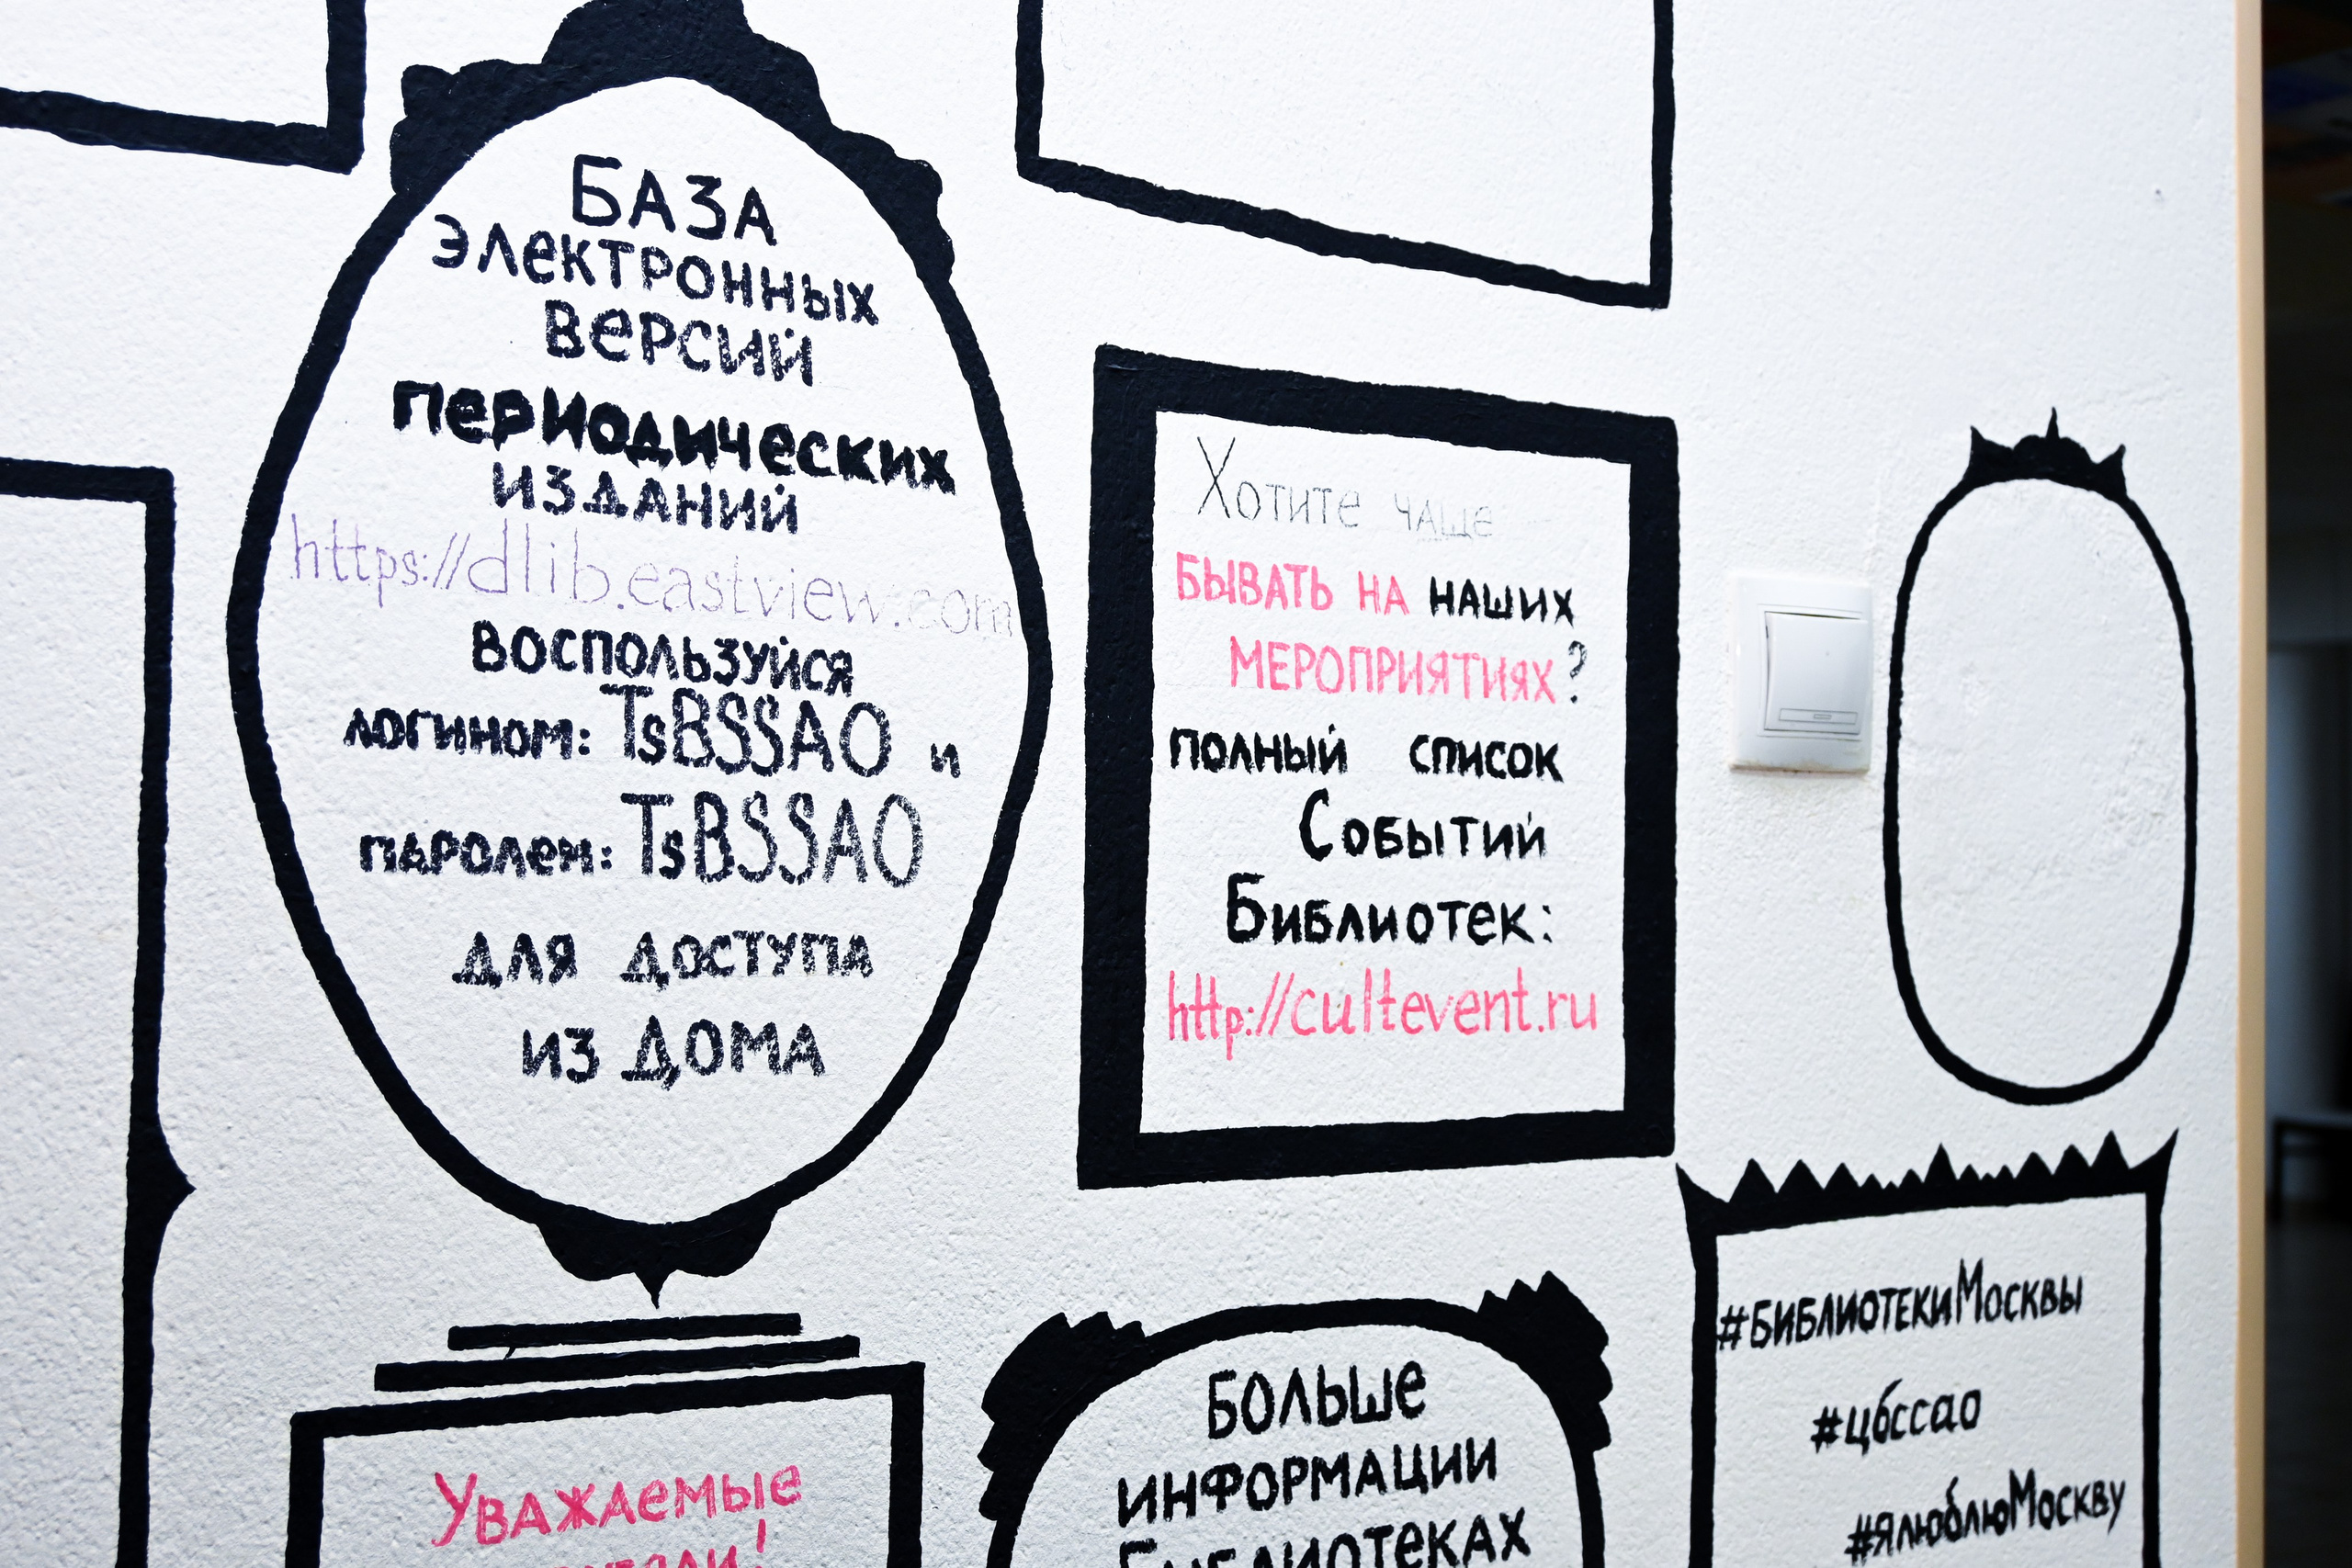 БАЗА
ЭЛеКТРОННЫХ
ВеРСИЙ
ПеРИОДИЧеСКИХ
ИЗДАНИЙ
https://dlib.eastview.com
ВОСПОЛЬЗУЙСЯ
ЛОГИНОМ: TsBSSAO и
ПАРОЛЕМ: TsBSSAO
ДЛЯ ДОСТУПА
ИЗ ДОМА
Хотите чаще
БЫВАТЬ НА НАШИХ
МЕРОПРИЯТИЯХ?
ПОЛНЫЙ СПИСОК
СОБЫТИЙ
БИБЛИОТЕК:
http://cultevent.ru
УВАЖАеМЫе
БОЛЬШе
ИНФОРМАЦИИ
БИБЛИОТЕКАХ
#БИБЛИОТЕКИМОСКВЫ
#цбссао
#ЯлюблюМоскву